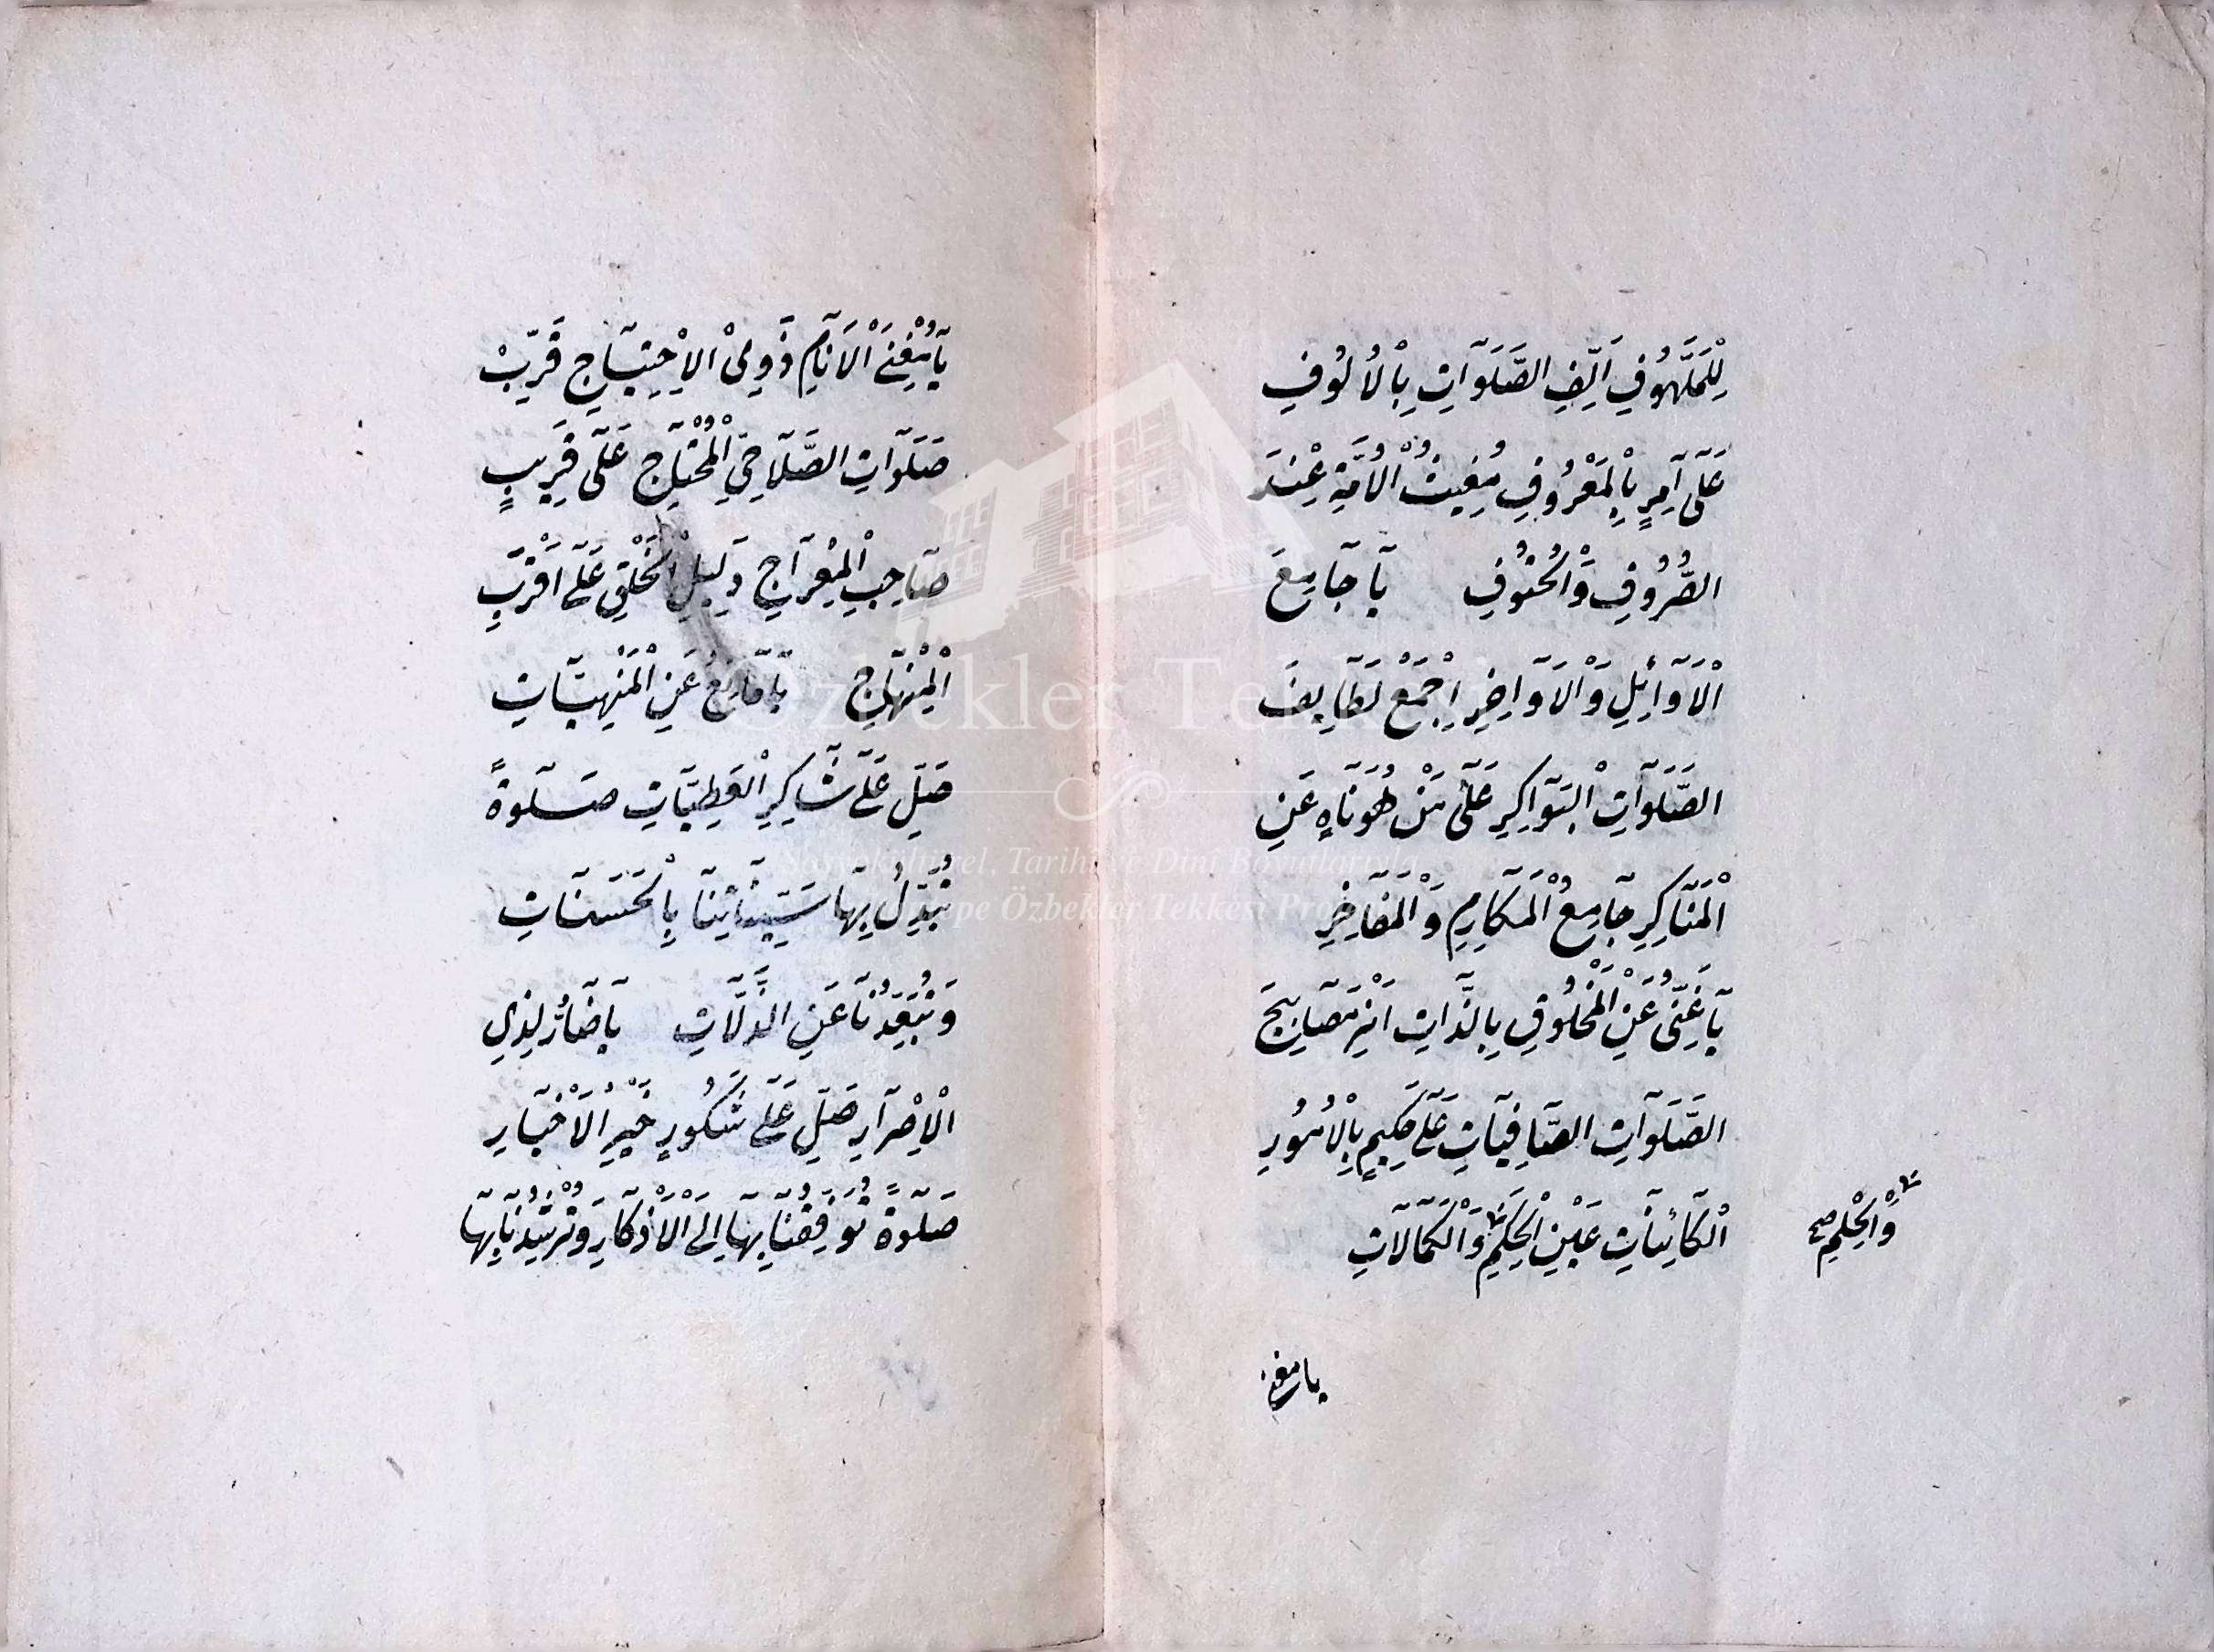 لِلْمَلْهُوفِ اَلِّفِ الصَّلَوَاتِ بِالْاُلُوفِ
عَلَى اٰمِرٍ بِالْمَعْرُوفِ مُغِيثُ الْاُمَّةِ عِنْدَ
الصُّرُوفِ وَالْحُتُوفِ يَا جَامِعَ
الْاَوَائِلِ وَالْاَوَاخِرِ اِجْمَعْ لَطَايِفَ
الصَّلَوَاتِ الْبَوَاكِرِ عَلَى مَنْ هُوَ نَاهٍ عَنِ
الْمَنَاكِرِ جَامِعُ الْمَكَارِمِ وَالْمَفَاخِرِ
يَا غَنِىُّ عَنِ الْمَخْلُوقِ بِالذَّاتِ اَنِرْ مَصَابِيحَ
الصَّلَوَاتِ الصَّافِيَاتِ عَلَى حَكِيمٍ بِالْاُمُورِ
الْكَائِنَاتِ عَيْنِ الْحِكَمِ وَالْكَمَالَاتِ
وَالْحِلْمِ صح
يا مغنى
يَا مُغْنِىَ الْاَنَامِ ذَوِى الْاِحْتِيَاجِ قَرِّبْ
صَلَوَاتِ الصَّلَاحِىِّ الْمُحْتَاجِ عَلَى قَرِيبٍ
صَاحِبِ الْمِعْرَاجِ دَلِيلِ الْخَلْقِ عَلَى اَقْرَبِ
الْمِنْهَاجِ يَا مَانِعُ عَنِ الْمَنْهِيَّاتِ
صَلِّ عَلَى شَاكِرِ الْعَطِيَّاتِ صَلٰوةً
تُبَدِّلُ بِهَا سَيِّئَاتِنَا بِالْحَسَنَاتِ
وَتُبَعِّدُنَا عَنِ الذَّلَّاتِ يَا ضَارُّ لِذِى
الْاِصْرَارِ صَلِّ عَلَى شَكُورٍ خَيْرِ الْاَخْيَارِ
صَلٰوةً تُوَفِّقُنَا بِهَا اِلَى الْاَذْكَارِ وَتُرْشِدُنَا بِهَا
Özbekler Tekkesi
Sosyokültürel, Tarihi ve Dini Boyutlarıyla
Özbekler Tekkesi